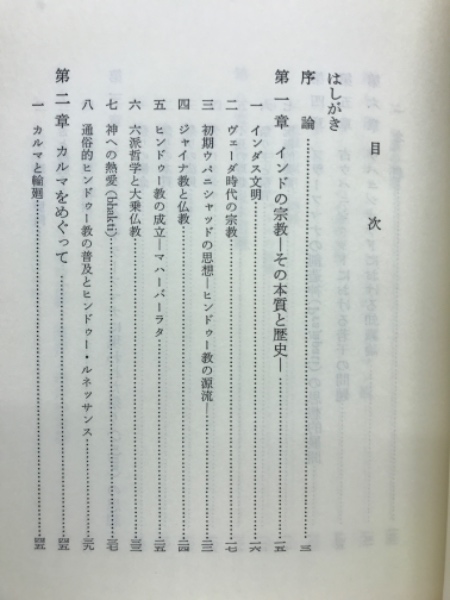 目次
はしがき
序論……三
第一章 インドの宗教―その本質と歴史―……一五
一 インダス文明……一六
二 ヴェーダ時代の宗教……一七
三 初期ウパニシャッドの思想―ヒンドゥー教の源流―……二二
四 ジャイナ教と仏教……二四
五 ヒンドゥー教の成立―マハーバーラタ……二五
六 六派哲学と大乗仏教……三三
七 神への熱愛(bhakti)……三七
八 通俗的ヒンドゥー教の普及とヒンドゥー・ルネッサンス……三九
第二章 カルマをめぐって……四五
一 カルマと輪廻……四五